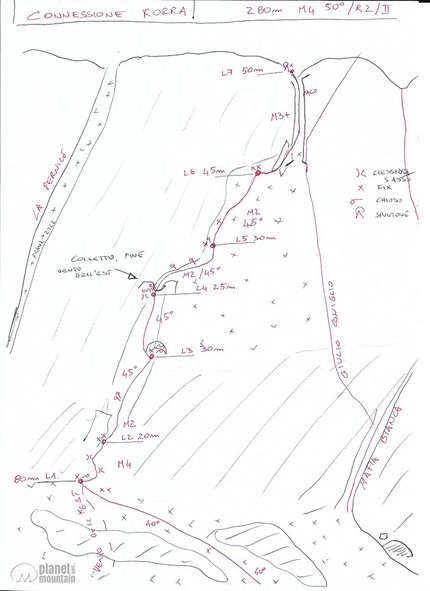 CONNESSIONE KORRA
280m M4 50°/R2/II
L7 50m
M3+
L6 45m
CLESSIDRA
SASSO
FIX
CHIODO
SPUNTONE
M2
45°
L5 30m
COLLETTO, FINE
VENTO
DELL'EST
M2/45°
L4 25m
45°
L3 30m
45°
M2
L2 20m
M4
80m L1
40°
40°
VENTO DELL'EST
LA PERNICE
GIULIO CONIGLIO
MAFIA BIANCA
planet
mountain